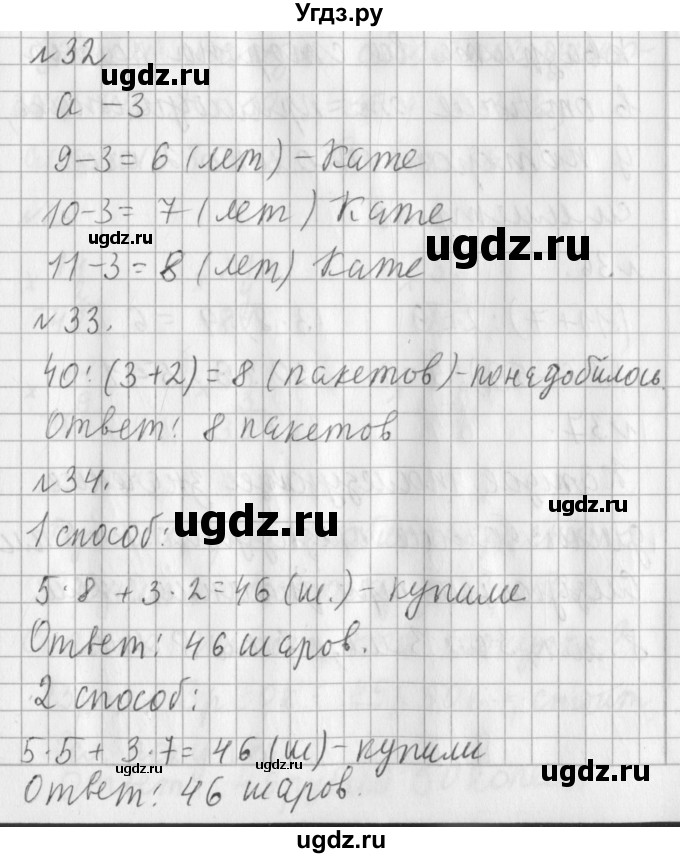 Угдз.ру
№32
ugdz.ru
ugdz.ru
а - 3
9-3= 6 (лет) - Кате
10-3= 7 (лет) Кате
ugdz.ru
ugdz.ru
11-3= 8 (лет) Кате
№33.
40:(3+2)= 8 (пакетов)-понадобилось.
Ответ: 8 пакетов
№34.
ugdz.ru
ugdz.ru
1 способ:
5·8 + 3·2= 46 (ш.) - купили
Ответ: 46 шаров.
2 способ:
5·5 + 3·7= 46 (ш) - купили
ugdz.ru
ugdz.ru
Ответ: 46 шаров.
ugdz.ru